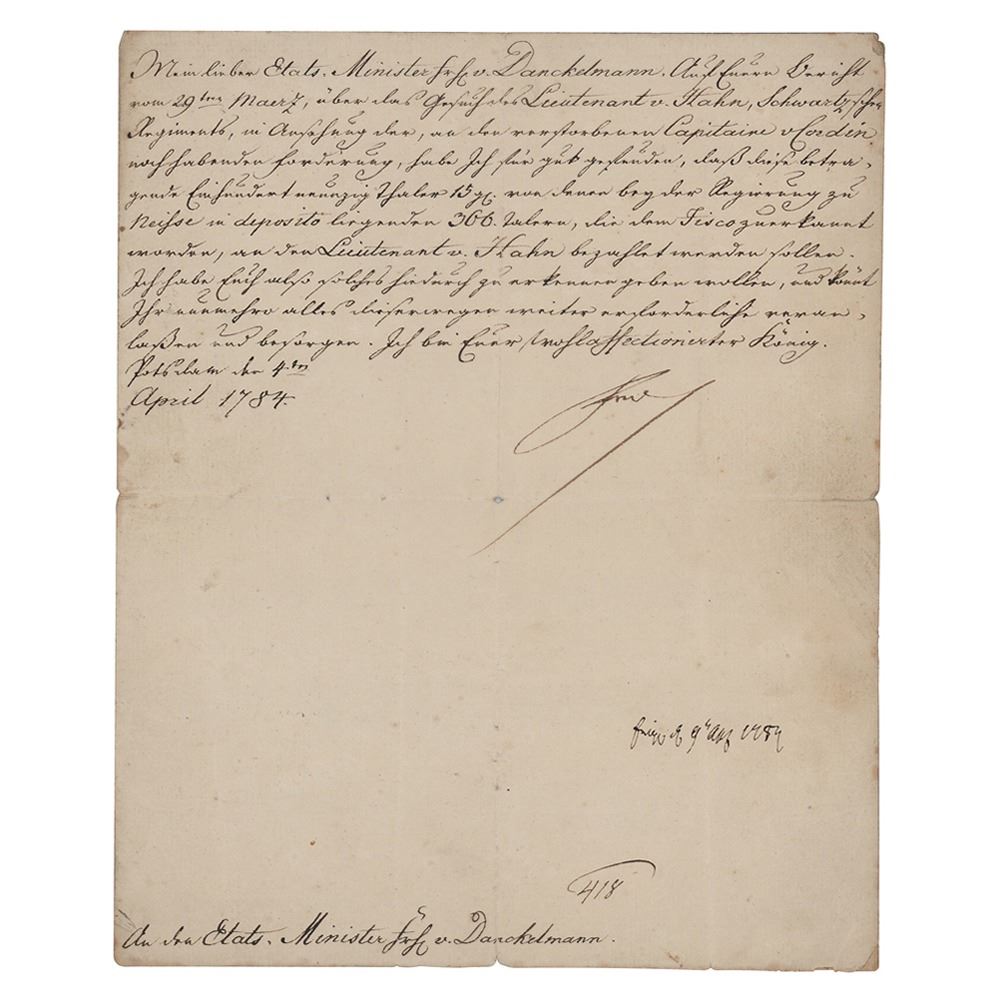 Mein lieber Etats-Minister Frh. v. Danckelmann. Auf Euern Bericht
vom 29ten Maerz, über das Gesuch des Lieutenant v. Hahn, Schwartzschen
Regiments, in Ansehung der, an den verstorbenen Capitaine v Cordin
noch habenden Forderung, habe Ich für gut gefunden, daß diese betra-
gende Einhundert neunzig Thaler 15 gr. von denen bey der Regierung zu
Neisse in deposito liegenden 306. Talern, die dem Fisco zuerkannt
worden, an den Lieutenant v. Hahn bezahlet werden sollen.
Ich habe Euch also solches hiedurch zu erkennen geben wollen, und könnt
Ihr nunmehro alles dieserwegen weiter erforderliche veran-
laßen und besorgen. Ich bin Euer wohlaffectionirter König.
Potsdam den 4.ten
April 1784.
Frd
1784
418
An den Etats-Minister Frh. v. Danckelmann.